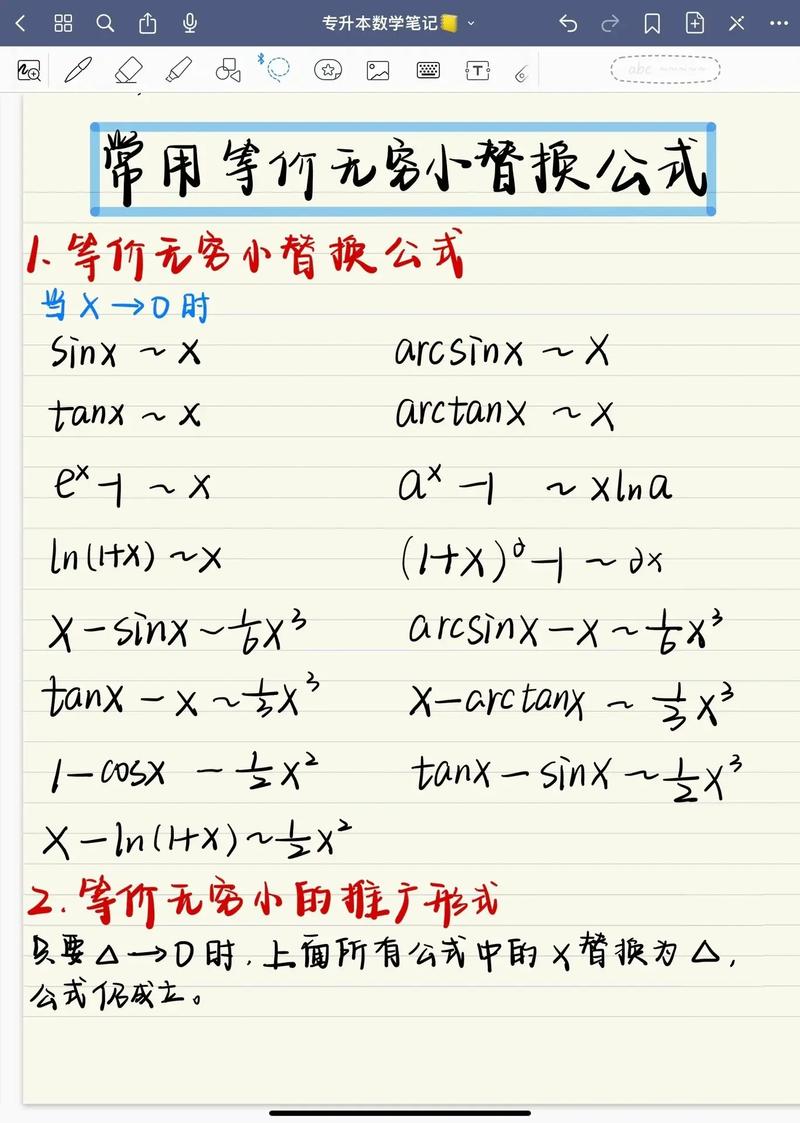 专升本数学笔记
abc
常用等价无穷小替换公式
1. 等价无穷小替换公式
当 x → 0 时
sinx ~ x    arcsinx ~ x
tanx ~ x    arctanx ~ x
eˣ-1 ~ x    aˣ-1 ~ xlna
ln(1+x) ~ x    (1+x)^∂-1 ~ ∂x
x-sinx ~ 1/6 x³    arcsinx-x ~ 1/6 x³
tanx-x ~ 1/3 x³    x-arctanx ~ 1/3 x³
1-cosx ~ 1/2 x²    tanx-sinx ~ 1/2 x³
x-ln(1+x) ~ 1/2 x²
2. 等价无穷小的推广形式
只要 △ → 0 时, 上面所有公式中的 x 替换为 △,
公式仍成立。